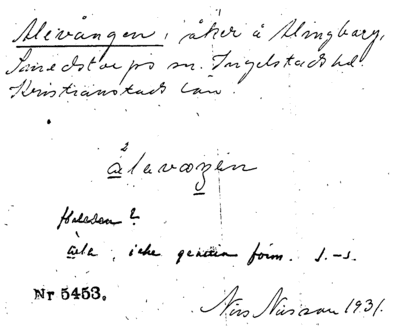 Alevången, åker å Almgbarg,
Smedstorps sn. Ingelstads hd.
Kristianstads län.
ålavɷŋen
?
åla, icke genuin form. J.-S.
Nr 5453.
Nils Nilsson 1931.